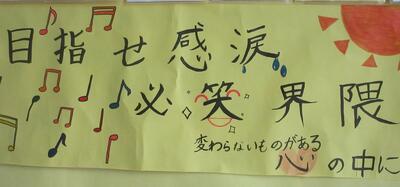 目指せ感涙
必笑界隈
変わらないものがある
心の中に